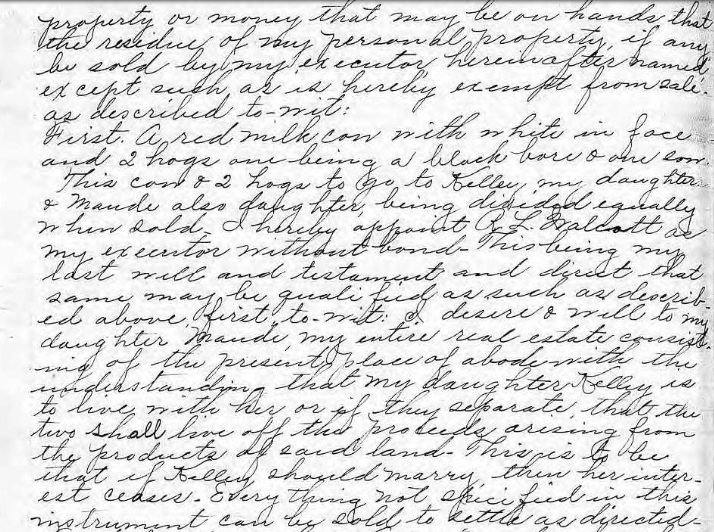 property or money that may be on hands, that
the residue of my personal property, if any
be sold by my executor hereinafter named
except such as is hereby exempt from sale.
as described to-wit:
First. A red milk cow with white in face
and 2 hogs one being a black bore & one sow.
This cow & 2 hogs to go to Kelley, my daughter
& Maude also daughter, being divided equally
when sold - I hereby appoint R. L. Walcott as
my executor without bond - This being my
last will and testament and direct that
same may be qualified as such as describ-
ed above, first, to-wit: I desire & will to my
daughter Maude, my entire real estate consist-
ing of the present place of abode with the
understanding that my daughter Kelley is
to live with her or if they separate, that the
two shall live off the proceeds arising from
the products of said land - This is to be
that if Kelley should marry, then her inter-
est ceases - Everything not specified in this
instrument can be sold to settle as directed -